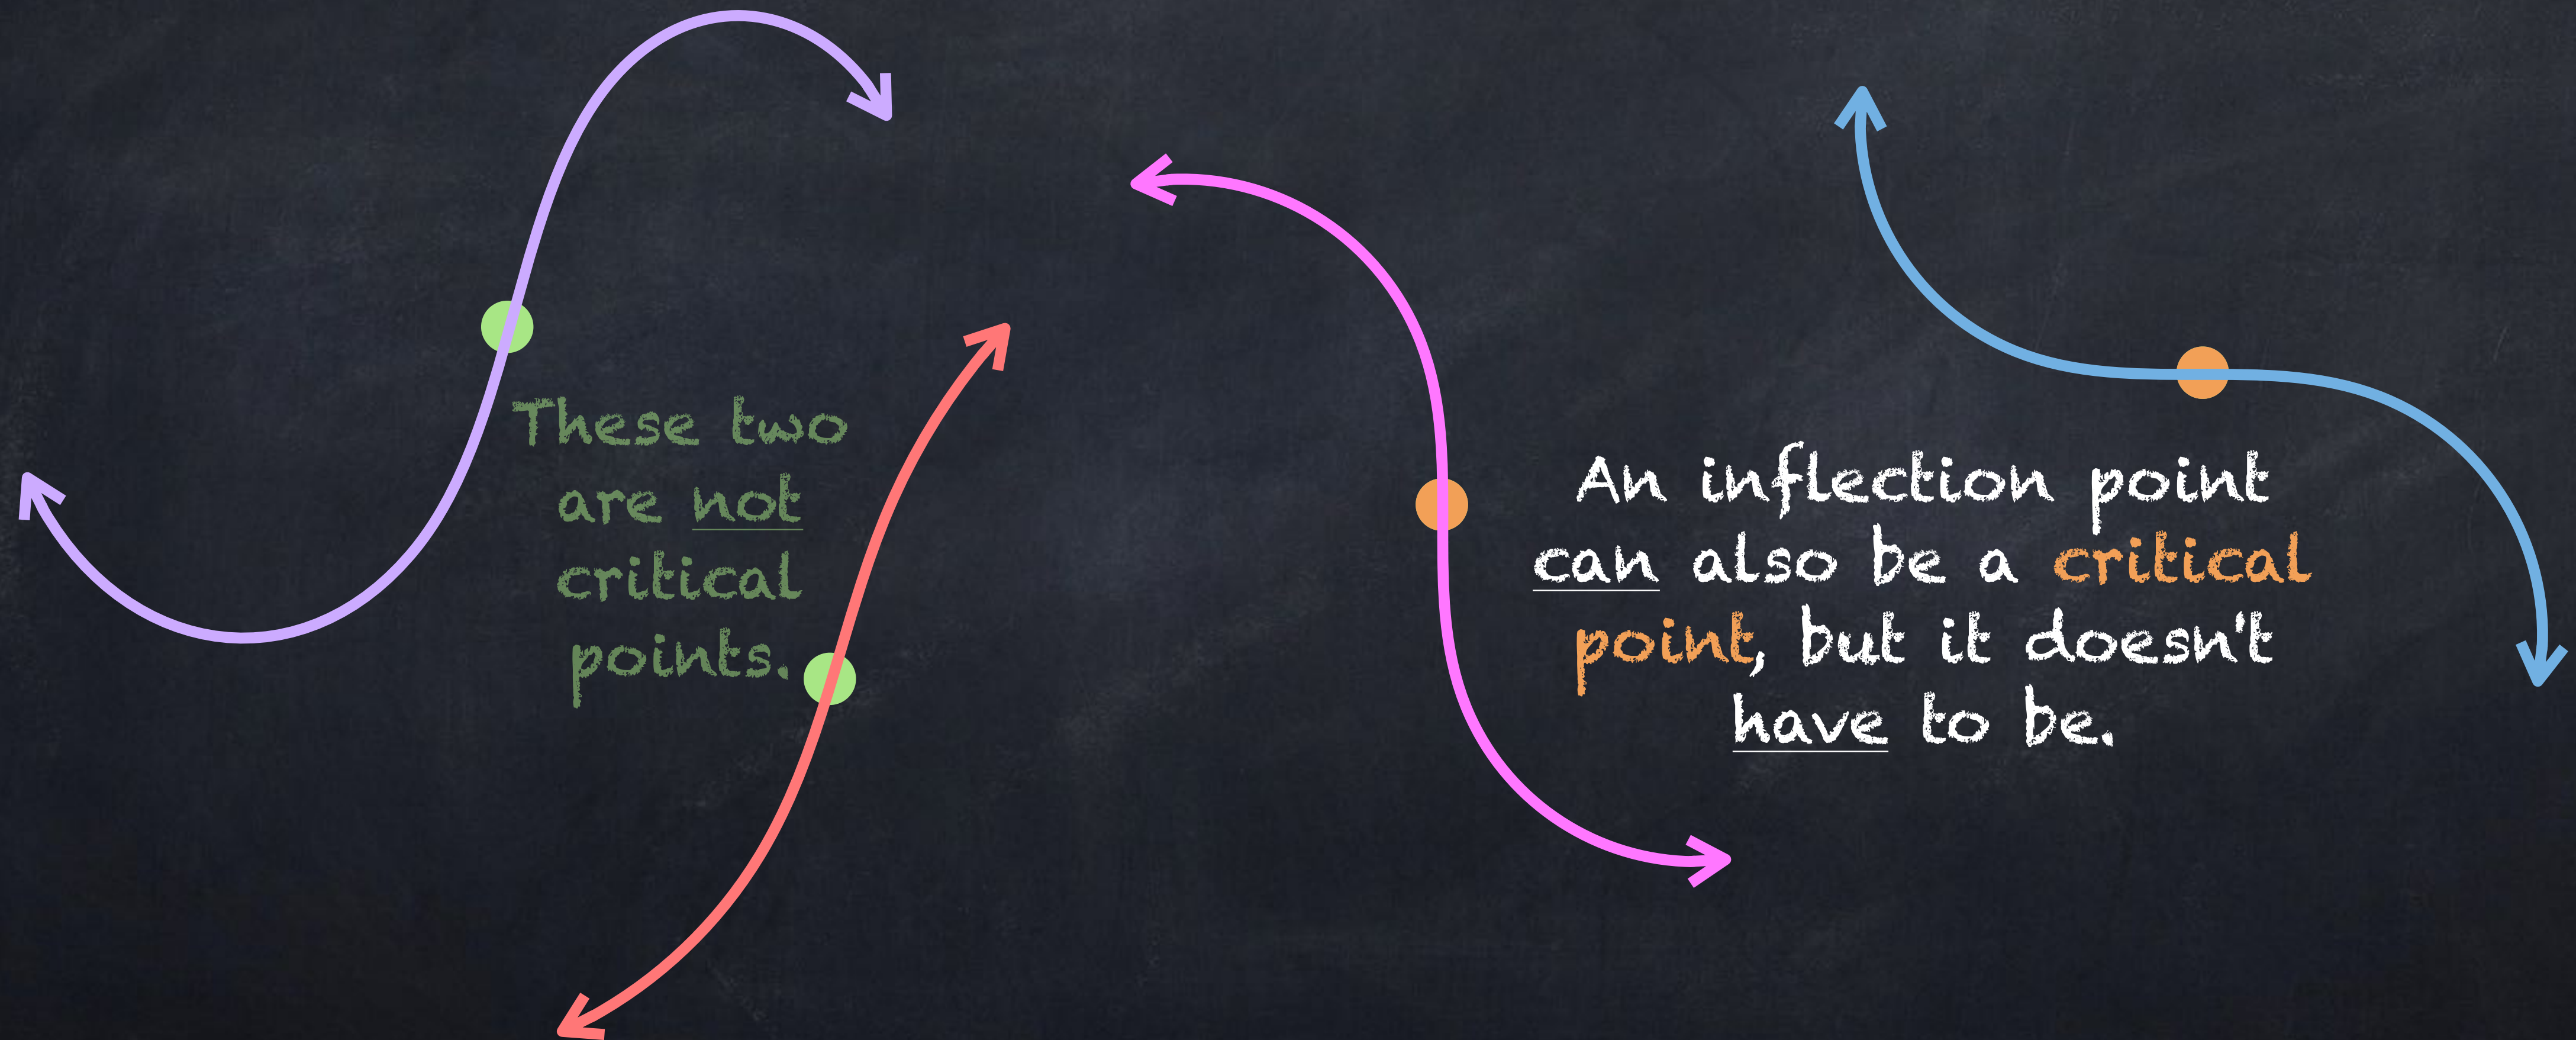 These two
are not
critical
points.
An inflection point
can also be a critical
point, but it doesn't
have to be.